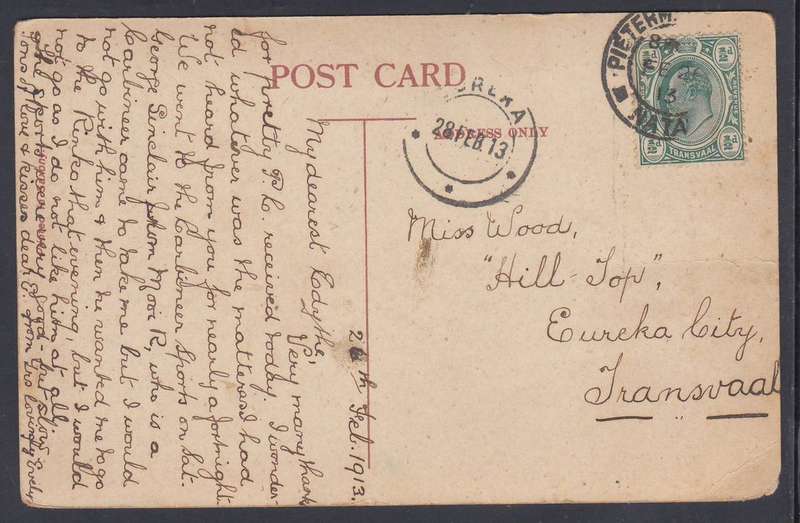 POST CARD
ADDRESS ONLY
EUREKA
28 FEB. 13
PIETERM
13
NATA
TRANSVAAL
½d
½d
Miss Wood,
"Hill-Top",
Eureka City,
Transvaal
26th Feb. 1913.
My dearest Edythe,
Very many thanks
for pretty P.C. received today. I wonder-
ed whatever was the matter as I had
not heard from you for nearly a fortnight.
We went to the Carbineer Sports on Sat.
George Sinclair from Mooi R, who is a
Carbineer came to take me but I would
not go with him & then he wanted me to go
to the Rinko that evening, but I would
not go as I do not like him at all.
The sports were very good
ons of love & kisses dear E. from yrs lovingly Evelyn